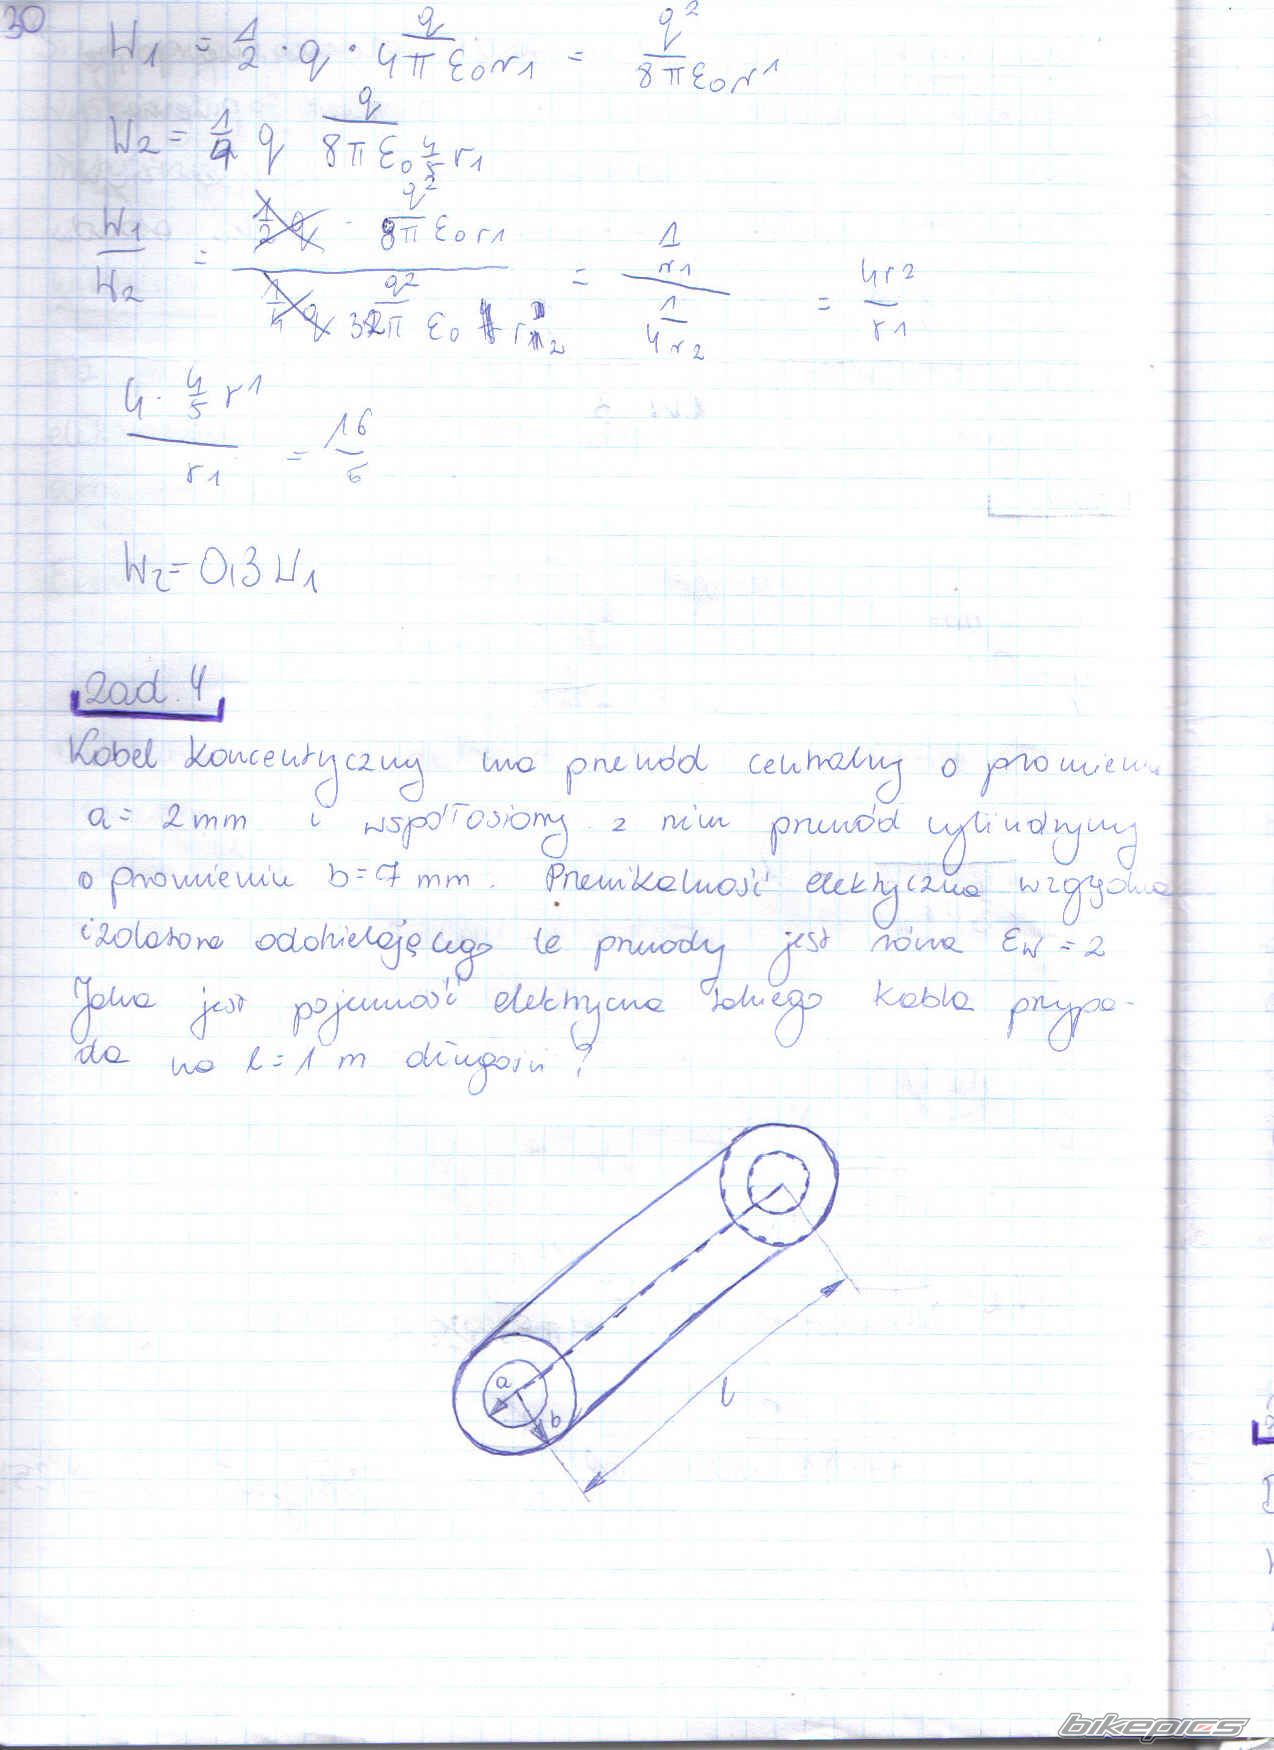 30
W1 = 1/2 · q · q/(4π ε0 r1) = q²/(8π ε0 r1)
W2 = 1/4 q q/(8π ε0 4/5 r1)
W1/W2 = (q²/(8π ε0 r1))/(q²/(32π ε0 r2)) = (1/r1)/(1/(4r2)) = 4r2/r1
(4 · 4/5 r1)/r1 = 16/5
W2 = 0,3 W1
Zad. 4
Kabel koncentyczny ma przewód centralny o promieniu
a = 2 mm i współosiowy z nim przewód cylindryczny
o promieniu b = 7 mm. Przenikalność elektryczna względna
izolatora oddzielającego te przewody jest równa εw = 2
Jaka jest pojemność elektryczna takiego kabla przypa-
da na l = 1 m długości?
a
b
l
bikepics